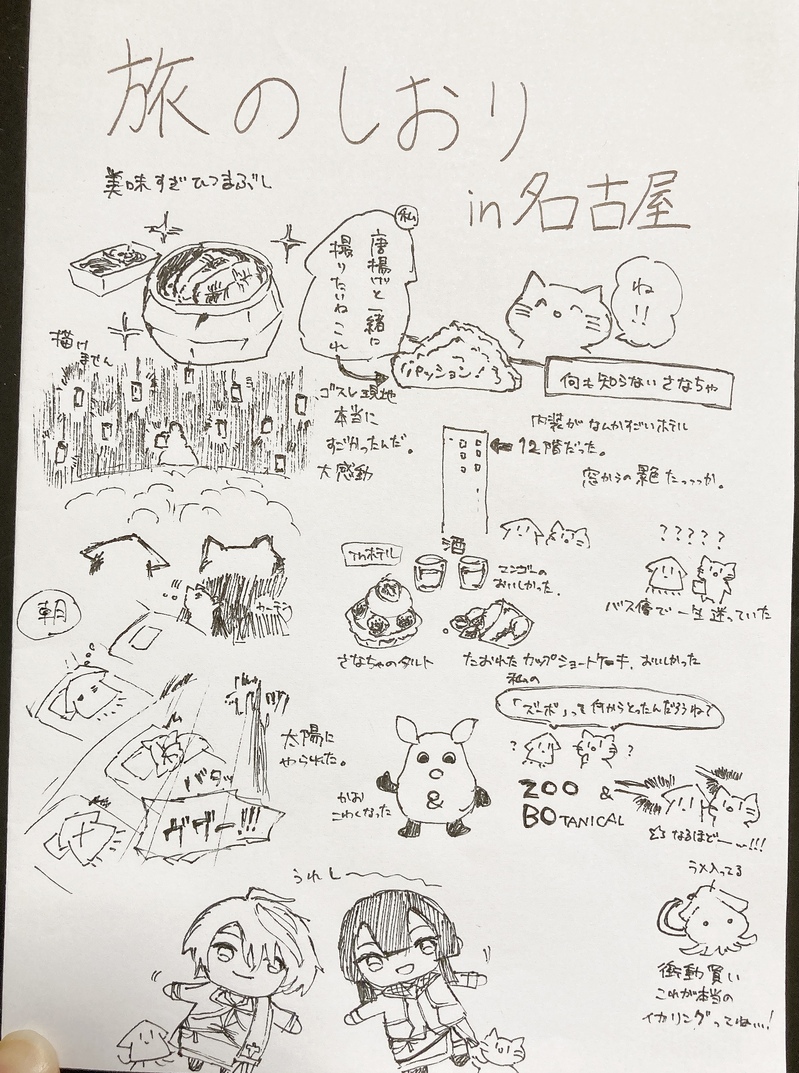 旅のしおり
in 名古屋
美味すぎひつまぶし
私
唐揚げと一緒に
撮りたいねこれ
ね!!
パッション!
何も知らないさなちゃ
描け
ません
ゴスレ現地
本当に
すごかったんだ。
大感動
内装がなんかすごいホテル
12階だった。
窓からの景色たっっっか。
酒
inホテル
マンゴーの
おいしかった.
?????
バス停で一生迷っていた
さなちゃのタルト
たおれたカップショートケーキ.おいしかった
私の
朝
カーテン
太陽に
やられた。
バタッ
ギザー!!!
「ズーボ」って何からとったんだろうね?
?
?
&
かお
こわくなった
ZOO &
BOTANICAL
なるほどー〜!!!
うれしー〜
ラメ入ってる
衝動買い
これが本当の
イカリングってね…!